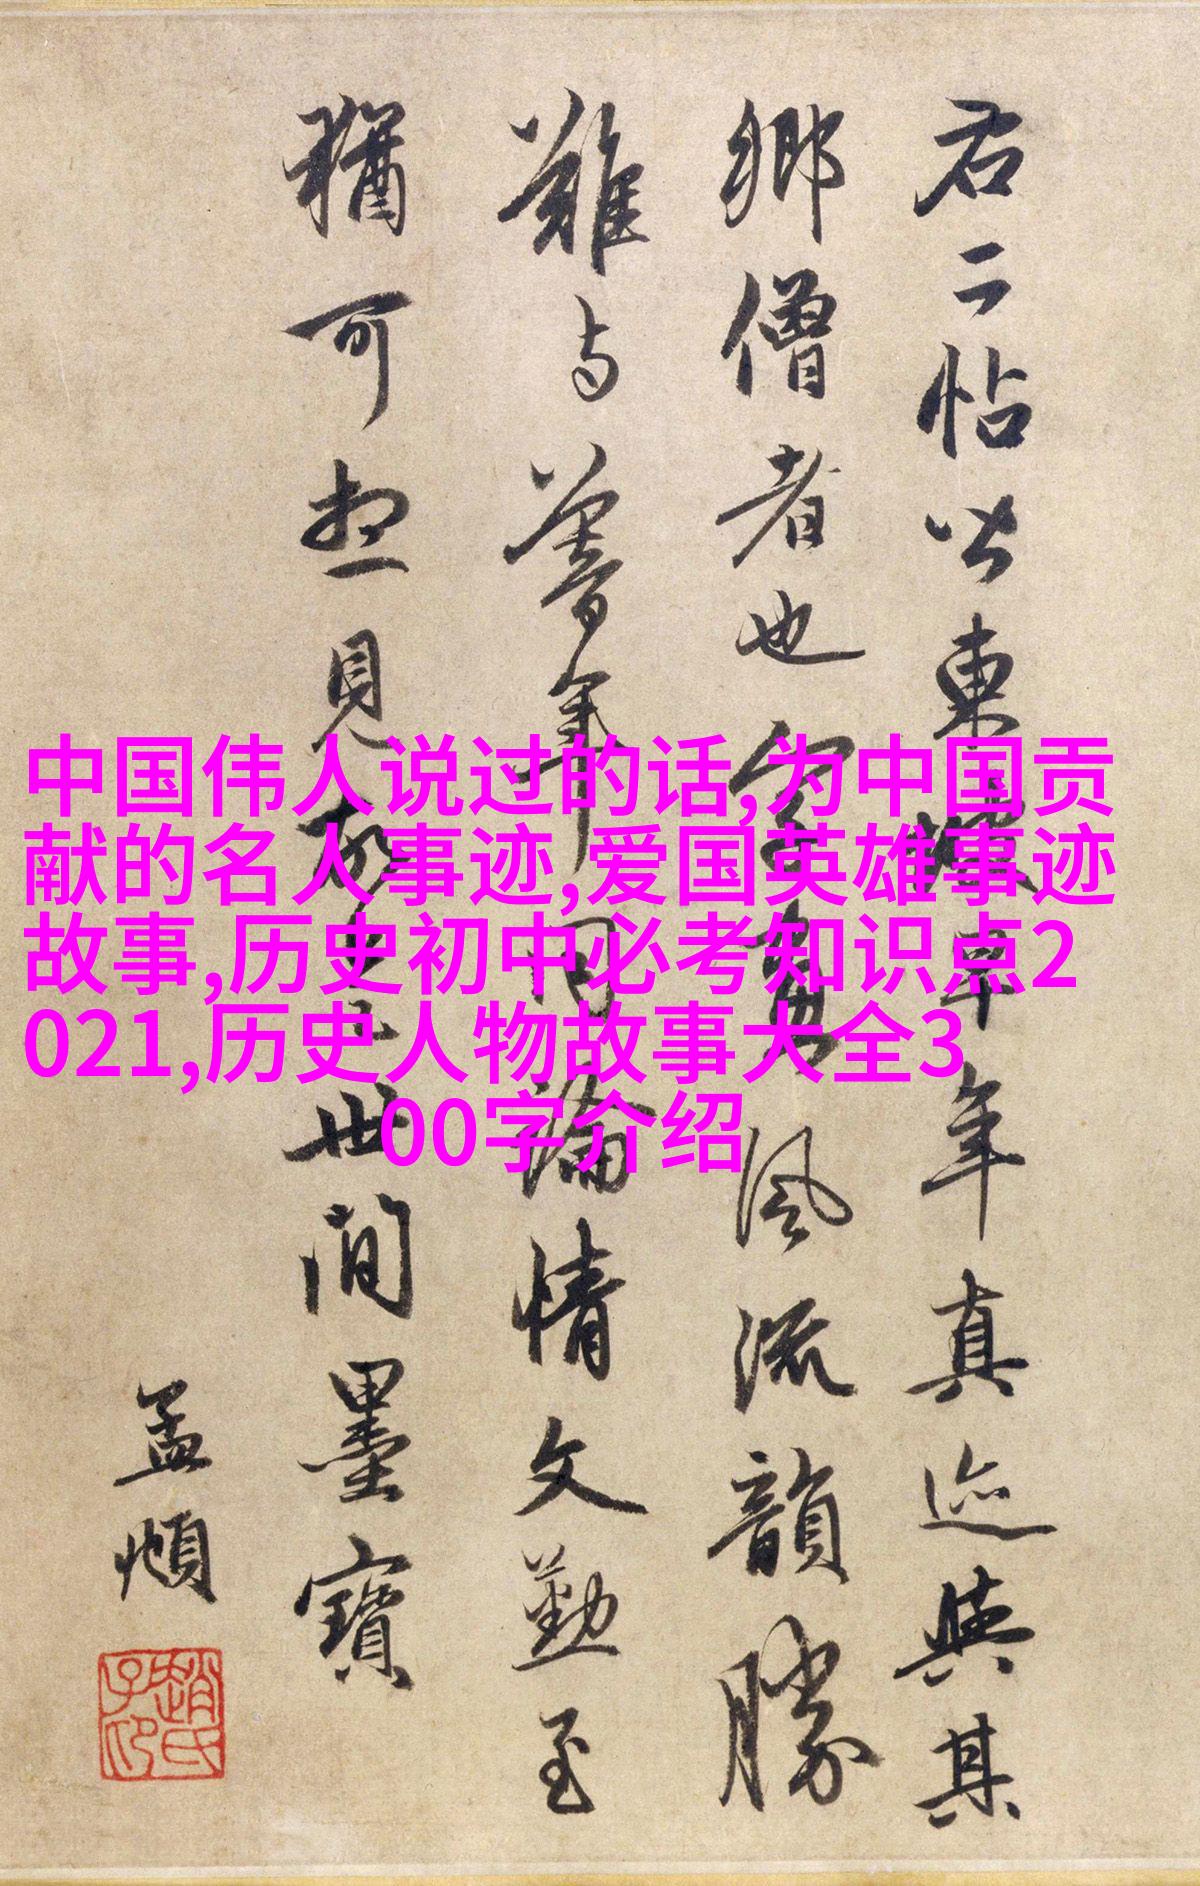 右二帖皆東坡早年真迹與其
鄉僧者也字畫風流韻勝
難與暮年同論情文勤至
猶可想見故是世間墨寶
孟頫
趙氏子昂
中国伟人说过的话,为中国贡
献的名人事迹,爱国英雄事迹
故事,历史初中必考知识点2
021,历史人物故事大全3
00字介绍